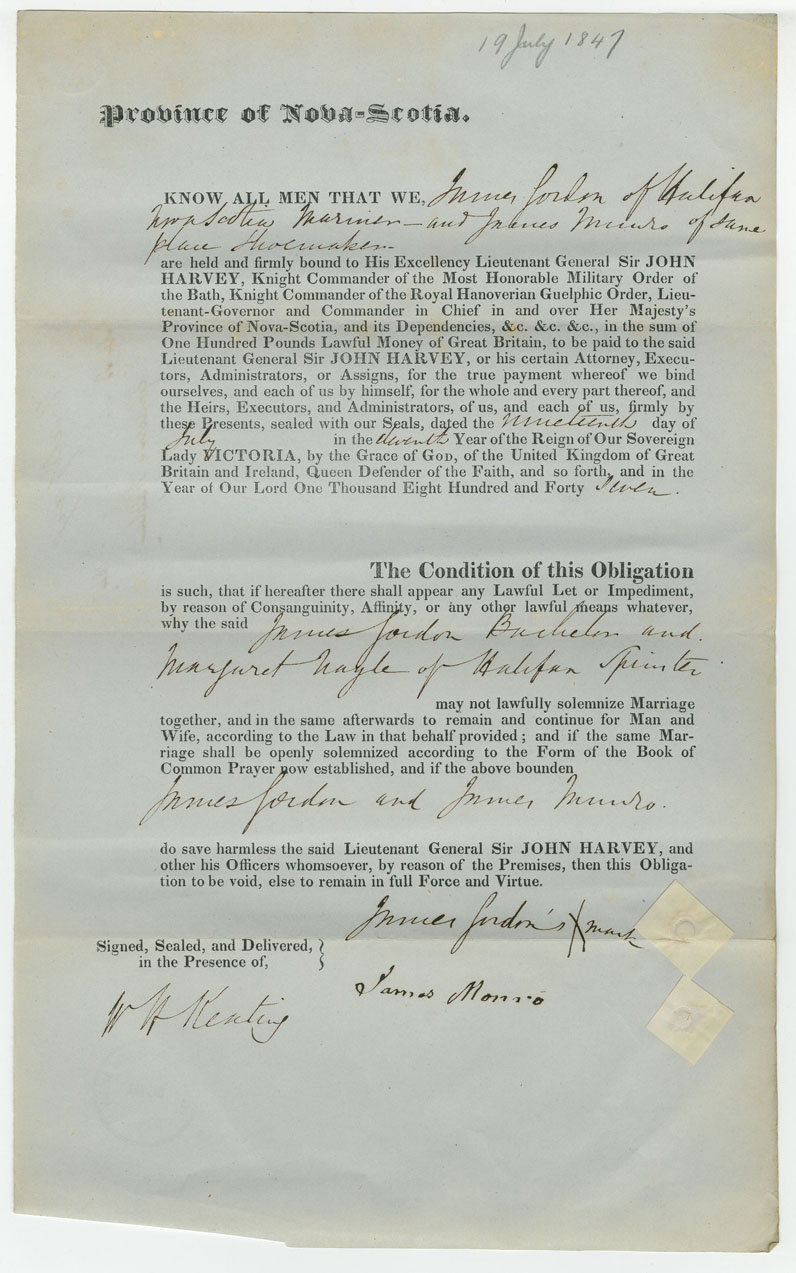 19 July 1847
Province of Nova-Scotia.
KNOW ALL MEN THAT WE, James Gordon of Halifax
Nova Scotia Mariner — and James Munro of same
place Shoemaker —
are held and firmly bound to His Excellency Lieutenant General Sir JOHN
HARVEY, Knight Commander of the Most Honorable Military Order of
the Bath, Knight Commander of the Royal Hanoverian Guelphic Order, Lieu-
tenant-Governor and Commander in Chief in and over Her Majesty's
Province of Nova-Scotia, and its Dependencies, &c. &c. &c., in the sum of
One Hundred Pounds Lawful Money of Great Britain, to be paid to the said
Lieutenant General Sir JOHN HARVEY, or his certain Attorney, Execu-
tors, Administrators, or Assigns, for the true payment whereof we bind
ourselves, and each of us by himself, for the whole and every part thereof, and
the Heirs, Executors, and Administrators, of us, and each of us, firmly by
these Presents, sealed with our Seals, dated the nineteenth day of
July in the eleventh Year of the Reign of Our Sovereign
Lady VICTORIA, by the Grace of GOD, of the United Kingdom of Great
Britain and Ireland, Queen Defender of the Faith, and so forth, and in the
Year of Our Lord One Thousand Eight Hundred and Forty Seven.
The Condition of this Obligation
is such, that if hereafter there shall appear any Lawful Let or Impediment,
by reason of Consanguinity, Affinity, or any other lawful means whatever,
why the said James Gordon Bachelor and
Margaret Nagle of Halifax Spinster
may not lawfully solemnize Marriage
together, and in the same afterwards to remain and continue for Man and
Wife, according to the Law in that behalf provided; and if the same Mar-
riage shall be openly solemnized according to the Form of the Book of
Common Prayer now established, and if the above bounden
James Gordon and James Munro.
do save harmless the said Lieutenant General Sir JOHN HARVEY, and
other his Officers whomsoever, by reason of the Premises, then this Obliga-
tion to be void, else to remain in full Force and Virtue.
James Gordon's X mark
Signed, Sealed, and Delivered,
in the Presence of,
James Monro
W H Keating